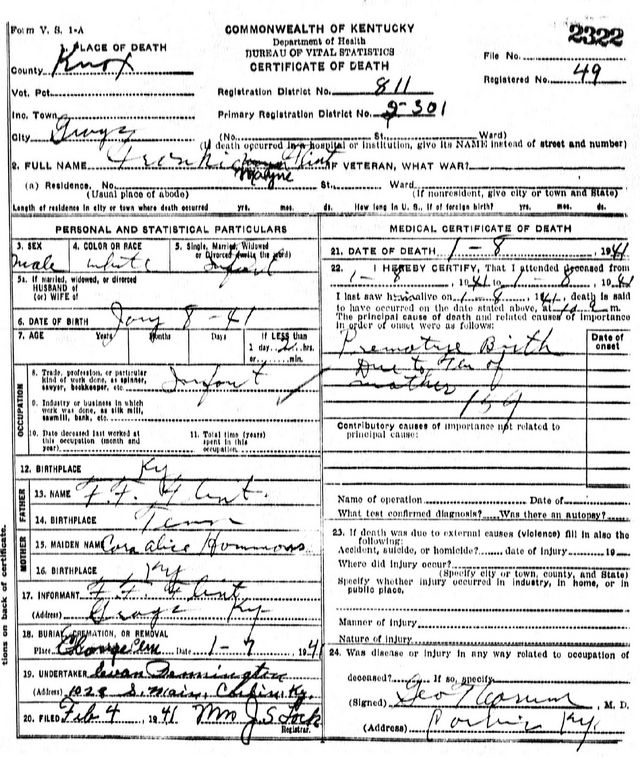 Form V. S. 1-A
COMMONWEALTH OF KENTUCKY
Department of Health
BUREAU OF VITAL STATISTICS
CERTIFICATE OF DEATH
2322
File No.
Registered No. 49
1. PLACE OF DEATH
County Knox
Registration District No. 811
Vot. Pct.
Inc. Town
Primary Registration District No. 2301
City
(No. St. Ward)
(If death occurred in a hospital or institution, give its NAME instead of street and number)
2. FULL NAME Flint IF VETERAN, WHAT WAR?
Wayne
(a) Residence. No. St. Ward
(Usual place of abode) (If nonresident, give city or town and State)
Length of residence in city or town where death occurred yrs. mos. ds. How long in U. S., if of foreign birth? yrs. mos. ds.
PERSONAL AND STATISTICAL PARTICULARS
3. SEX 4. COLOR OR RACE 5. Single, Married, Widowed
or Divorced (write the word)
male white Infant
5a. If married, widowed, or divorced
HUSBAND of
(or) WIFE of
6. DATE OF BIRTH Jany 8-41
7. AGE Years Months Days If LESS than
1 day, hrs.
or min.
OCCUPATION
8. Trade, profession, or particular
kind of work done, as spinner,
sawyer, bookkeeper, etc. Infant
9. Industry or business in which
work was done, as silk mill,
sawmill, bank, etc.
10. Date deceased last worked at
this occupation (month and
year)
11. Total time (years)
spent in this
occupation
12. BIRTHPLACE Ky
FATHER
13. NAME F. F. Flint
14. BIRTHPLACE Tenn
MOTHER
15. MAIDEN NAME Cora Alice Hammons
16. BIRTHPLACE Ky
17. INFORMANT F. F. Flint
(Address) Ky
18. BURIAL, CREMATION, OR REMOVAL
Place Date 1-9 1941
19. UNDERTAKER
(Address) S. Main, Corbin, Ky.
20. FILED Feb 4 1941 Mrs J. S. Lock
Registrar.
tions on back of certificate.
MEDICAL CERTIFICATE OF DEATH
21. DATE OF DEATH 1-8, 1941
22. I HEREBY CERTIFY, That I attended deceased from
1-8, 1941 to 1-8, 1941
I last saw him alive on 1-8, 1941, death is said
to have occurred on the date stated above, at m.
The principal cause of death and related causes of importance
in order of onset were as follows:
Date of
onset
Premature Birth
Due to of
mother
159
Contributory causes of importance not related to
principal cause:
Name of operation Date of
What test confirmed diagnosis? Was there an autopsy?
23. If death was due to external causes (violence) fill in also the
following:
Accident, suicide, or homicide? date of injury 19
Where did injury occur?
(Specify city or town, county, and State)
Specify whether injury occurred in industry, in home, or in
public place.
Manner of injury
Nature of injury
24. Was disease or injury in any way related to occupation of
deceased? If so, specify
(Signed) Geo , M. D.
(Address) Corbin Ky.